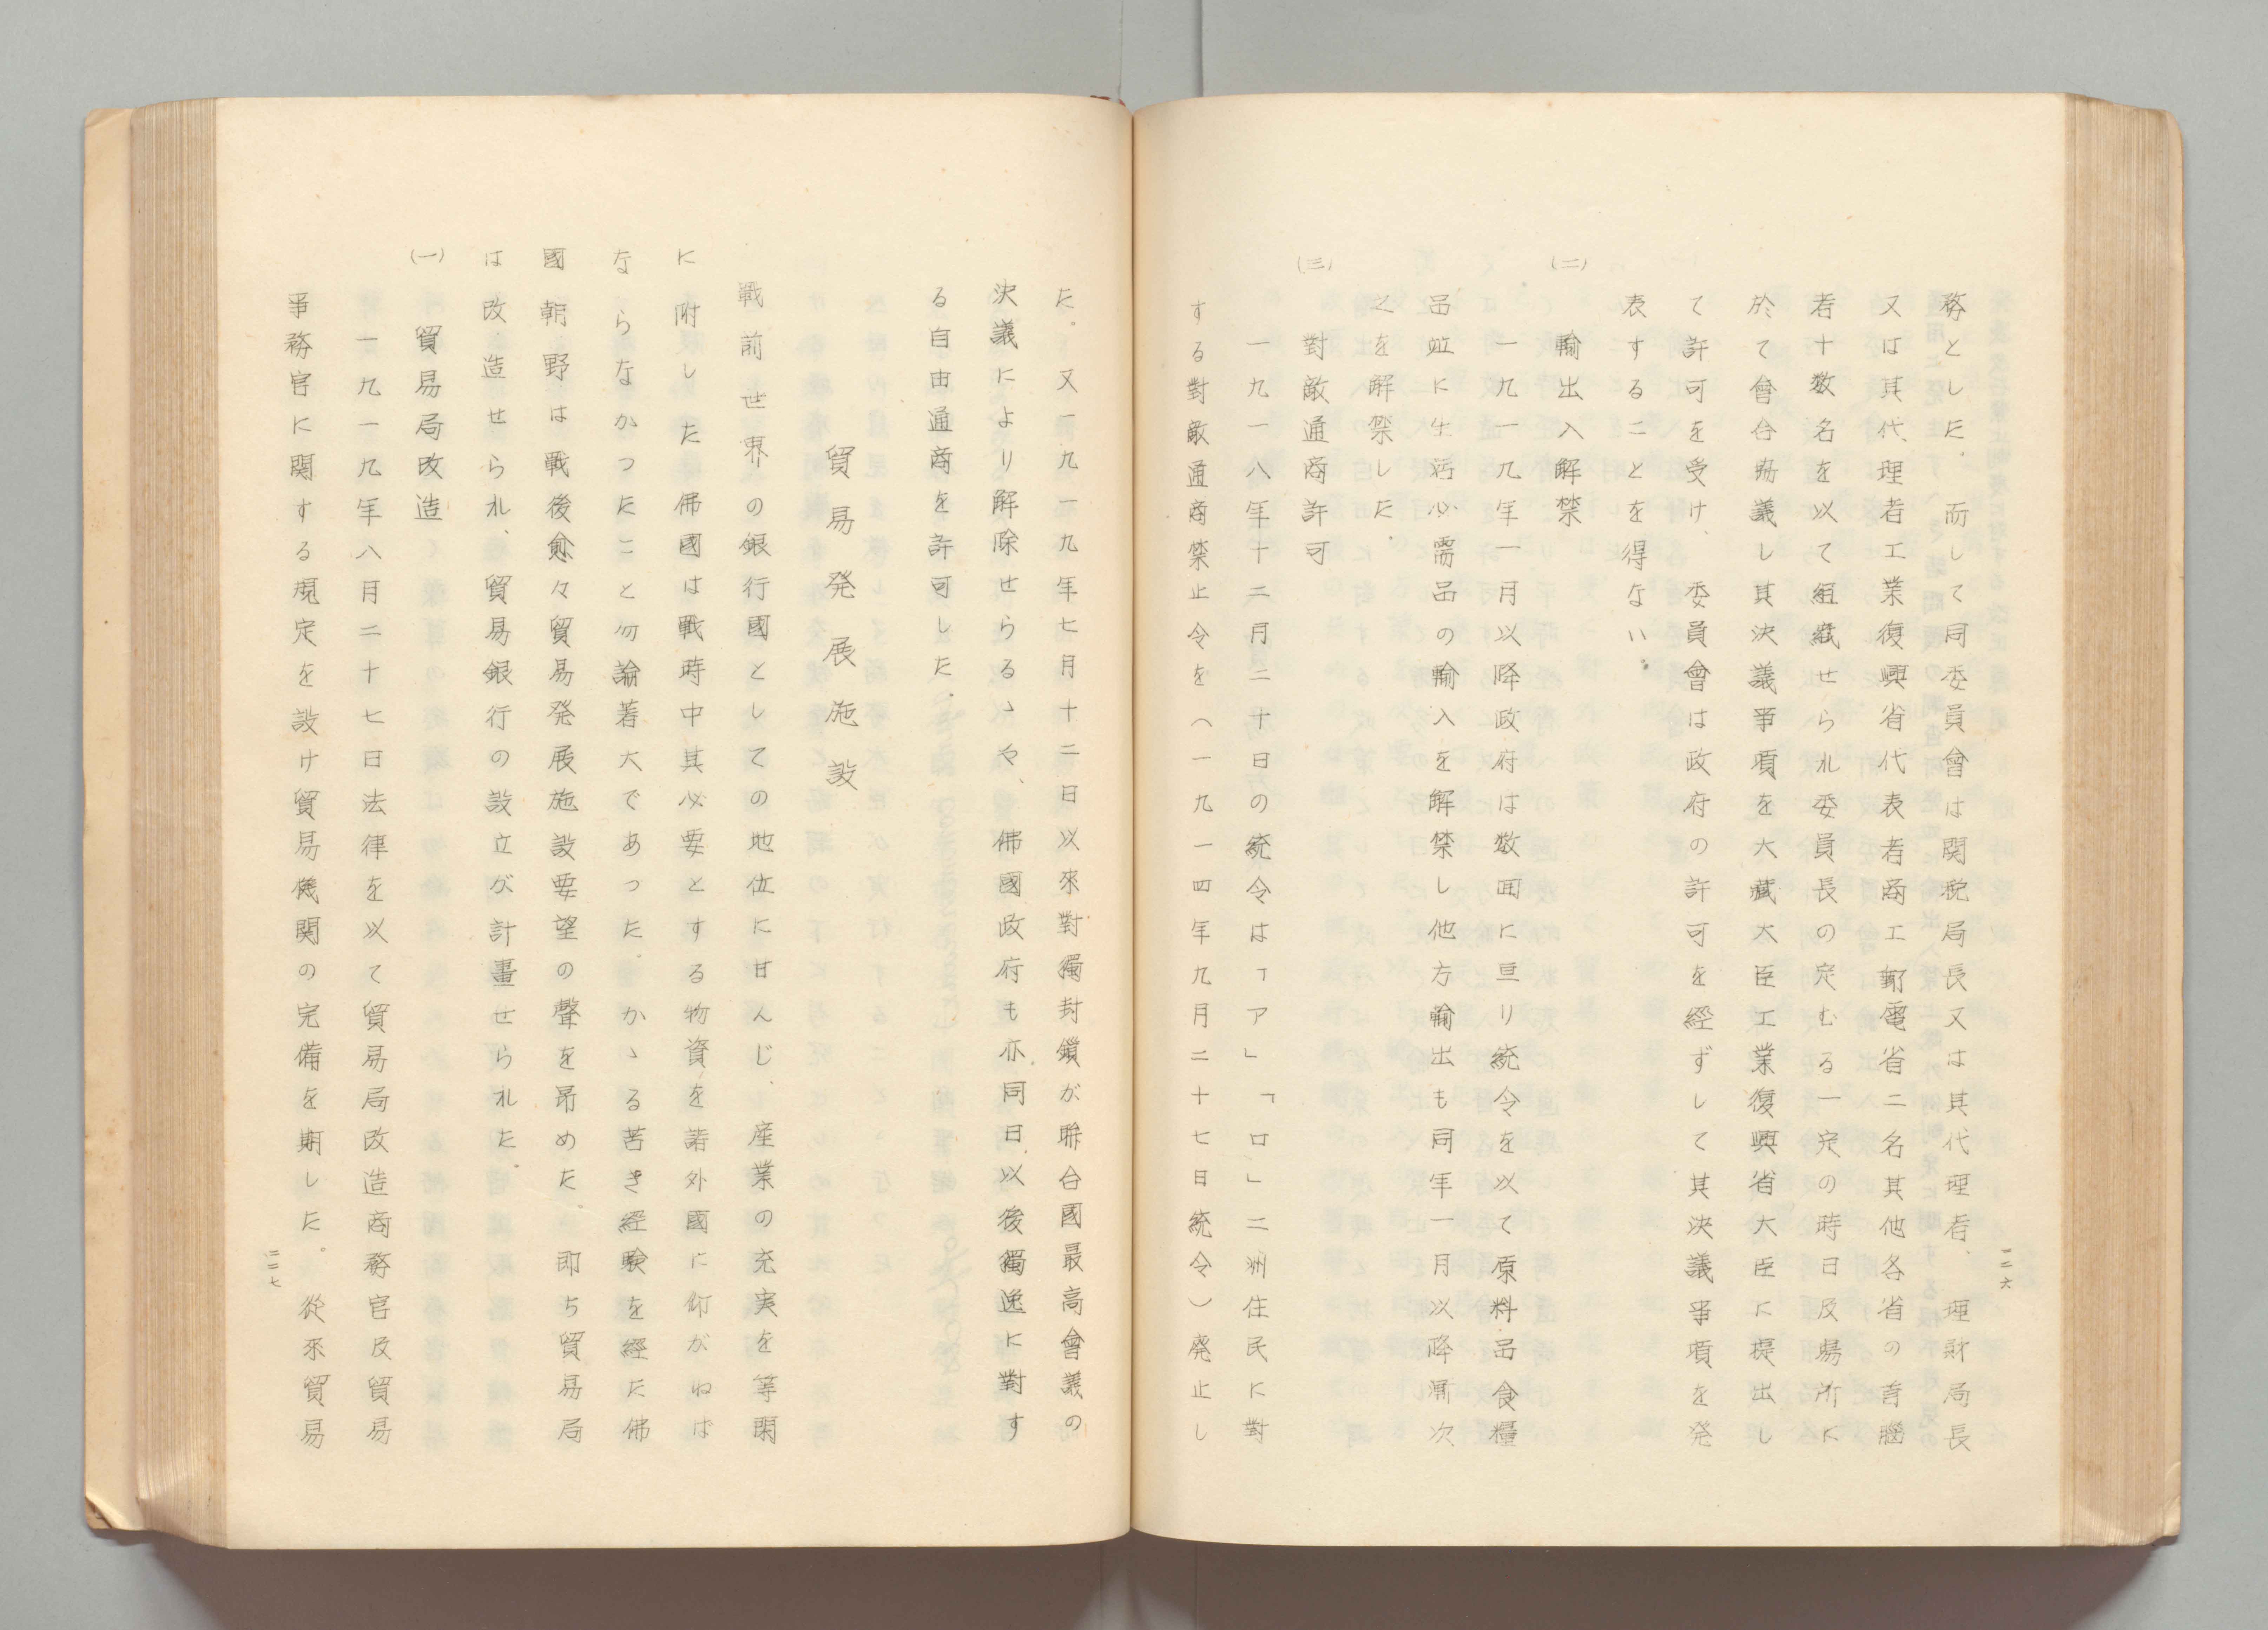 務とした。而して同委員會は関税局長又は其代理者、理財局長
又は其代理者工業復興省代表者商工郵電省二名其他各省の首脳
者十数名を以て組織せられ委員長の定むる一定の時日及場所に
於て會合協議し其決議事項を大藏大臣工業復興省大臣に提出し
て許可を受け、委員會は政府の許可を経ずして其決議事項を発
表することを得ない。
(二) 輸出入解禁
一九一九年一月以降政府は数囬に亘り統令を以て原料品食糧
品並に生活必需品の輸入を解禁し他方輸出も同年一月以降漸次
之を解禁した。
(三) 對敵通商許可
一九一八年十二月二十日の統令は「ア」「ロ」二洲住民に對
する對敵通商禁止令を(一九一四年九月二十七日統令)廃止し
二二六
た。又一九一九年七月十二日以來對獨封鎖が聯合國最高會議の
決議により解除せらるゝや、佛國政府も亦同日以後獨逸に對す
る自由通商を許可した。
貿易発展施設
戰前世界の銀行國としての地位に甘んじ、産業の充実を等閑
に附した佛國は戰時中其必要とする物資を諸外國に仰がねば
ならなかつたこと勿論著大であった。かゝる苦き經験を經た佛
國朝野は戰後愈々貿易発展施設要望の聲を昂めた。即ち貿易局
は改造せられ、貿易銀行の設立が計畫せられた。
(一) 貿易局改造
一九一九年八月二十七日法律を以て貿易局改造商務官及貿易
事務官に関する規定を設け貿易機関の完備を期した。從來貿易
二二七